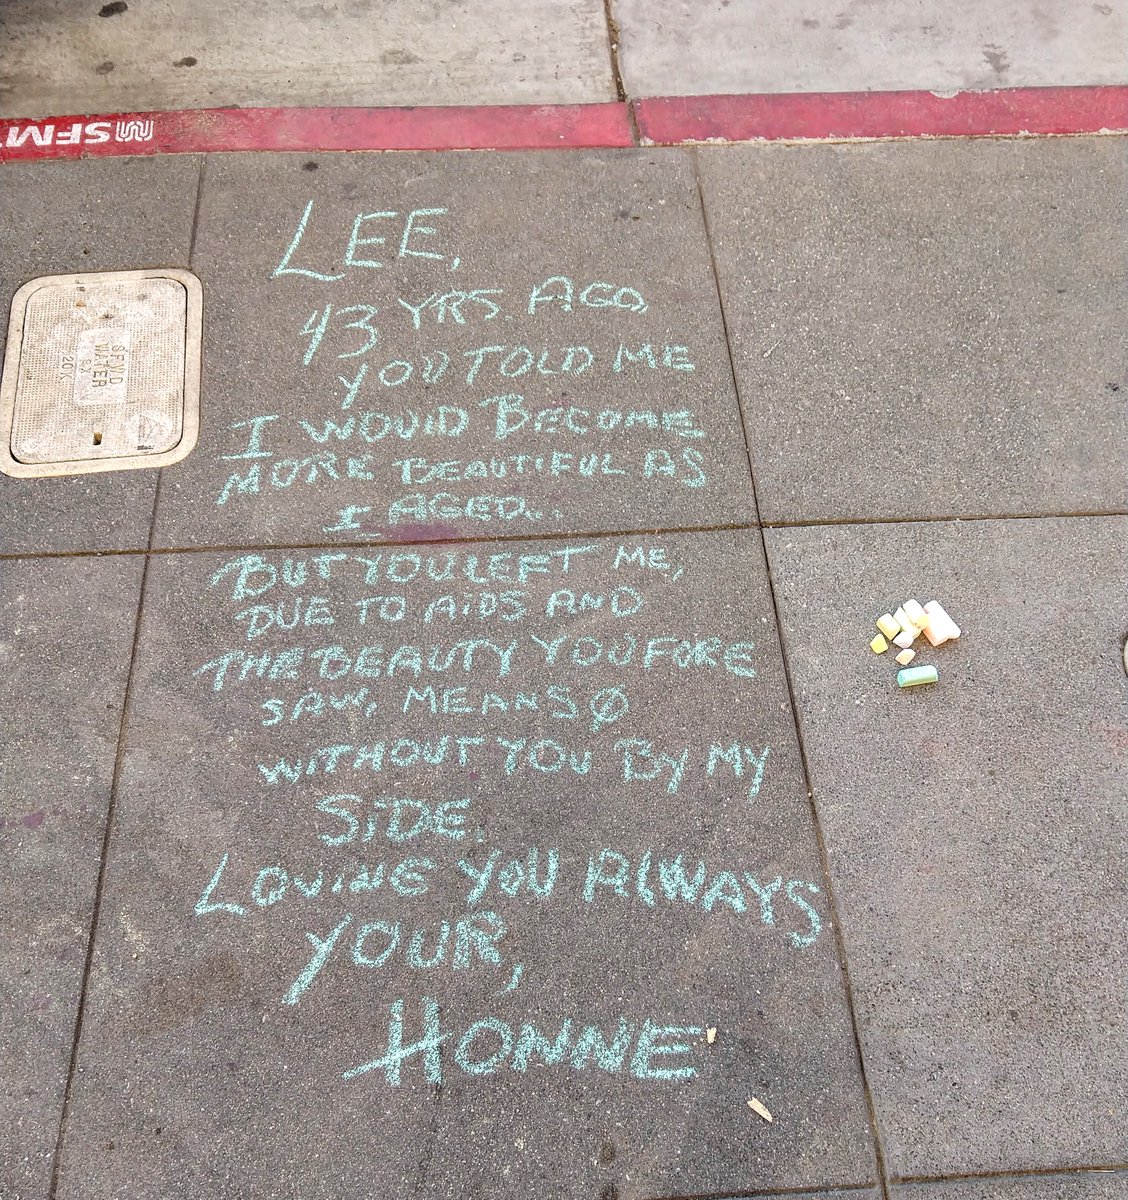 SFM
LEE,
43 YRS. AGO,
YOU TOLD ME
I WOULD BECOME
MORE BEAUTIFUL AS
I AGED...
BUT YOU LEFT ME,
DUE TO AIDS AND
THE BEAUTY YOU FORE
SAW, MEANS Ø
WITHOUT YOU BY MY
SIDE.
LOVING YOU ALWAYS
YOUR,
HONNE
SFWD
WATER